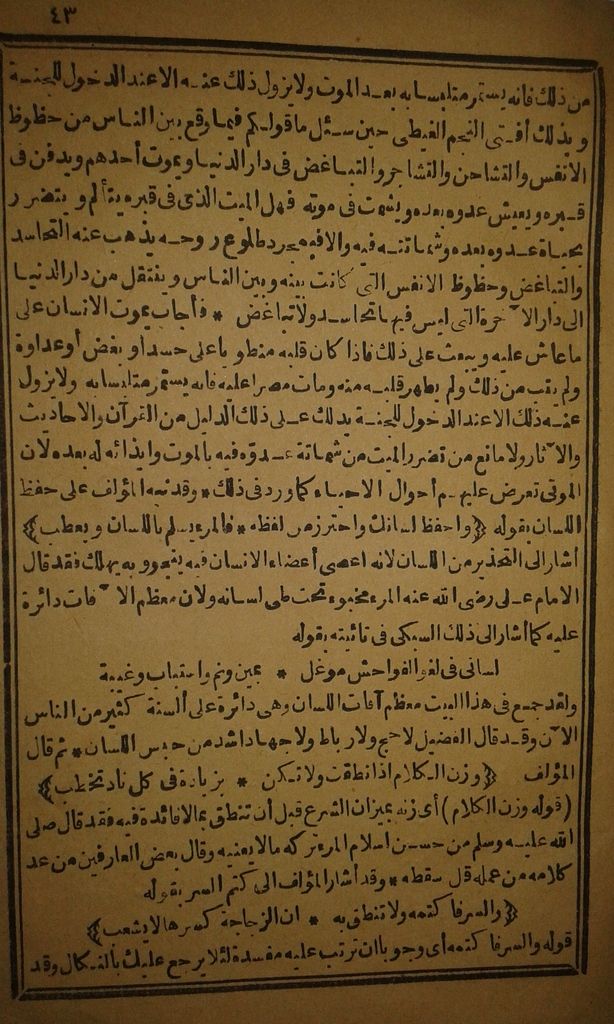 ٤٣
من ذلك فانه يستمر متلبسا به بعد الموت ولا يزول ذلك عنه الا عند الدخول للجنة
وبذلك أفتى النجم الغيطى حين سئل ما قولكم فيما وقع بين الناس من حظوظ
الانفس والتشاحن والتشاجر والتباغض فى دار الدنيا ويموت أحدهم ويدفن فى
قبره ويعيش عدوه بعده ويشمت فى موته فهل الميت الذى فى قبره يتألم ويتضرر
بحياة عدوه بعده وشماتته فيه والا فبمجرد طلوع روحه يذهب عنه التحاسد
والتباغض وحظوظ الانفس التى كانت بينه وبين الناس وينتقل من دار الدنيا
الى دار الآخرة التى ليس فيها تحاسد ولا تباغض * فأجاب يموت الانسان على
ما عاش عليه ويبعث على ذلك فاذا كان قلبه منطويا على حسد أو بغض أو عداوة
ولم يتب من ذلك ولم يطهر قلبه منه ومات مصرا عليه فانه يستمر متلبسا به ولا يزول
عنه ذلك الا عند الدخول للجنة يدلك على ذلك الدليل من القرآن والاحاديث
والآثار ولا مانع من تضرر الميت من شماتة عدوه فيه بالموت وايذائه له بعده لان
الموتى تعرض عليهم أحوال الاحياء كما ورد فى ذلك * وقد نبه المؤلف على حفظ
اللسان بقوله ﴿واحفظ لسانك واحترز من لفظه * فالمرء يسلم باللسان ويعطب﴾
أشار الى التحذير من اللسان لانه اعصى أعضاء الانسان فبه ينجو وبه يهلك فقد قال
الامام على رضى الله عنه المرء مخبوء تحت طى لسانه ولان معظم الآفات دائرة
عليه كما أشار الى ذلك السبكى فى تائيته بقوله
لسانى فى لغو الفواحش موغل * بمين ونم واستباب وغيبة
ولقد جمع فى هذا البيت معظم آفات اللسان وهى دائرة على ألسنة كثير من الناس
الآن وقد قال الفضيل لا حج ولا رباط ولا جهاد أشد من حبس اللسان * ثم قال
المؤلف ﴿وزن الكلام اذا نطقت ولا تكن * بزيادة فى كل ناد تخطب﴾
(قوله وزن الكلام) أى زنه بميزان الشرع قبل أن تنطق بما لا فائدة فيه فقد قال صلى
الله عليه وسلم من حسن اسلام المرء تركه ما لا يعنيه وقال بعض العارفين من عد
كلامه من عمله قل سقطه * وقد أشار المؤلف الى كتم السر بقوله
﴿والسر فاكتمه ولا تنطق به * ان الزجاجة كسرها لا يشعب﴾
قوله والسر فاكتمه أى وجوبا ان ترتب عليه مفسدة لئلا يرجع عليك بالنكال وقد